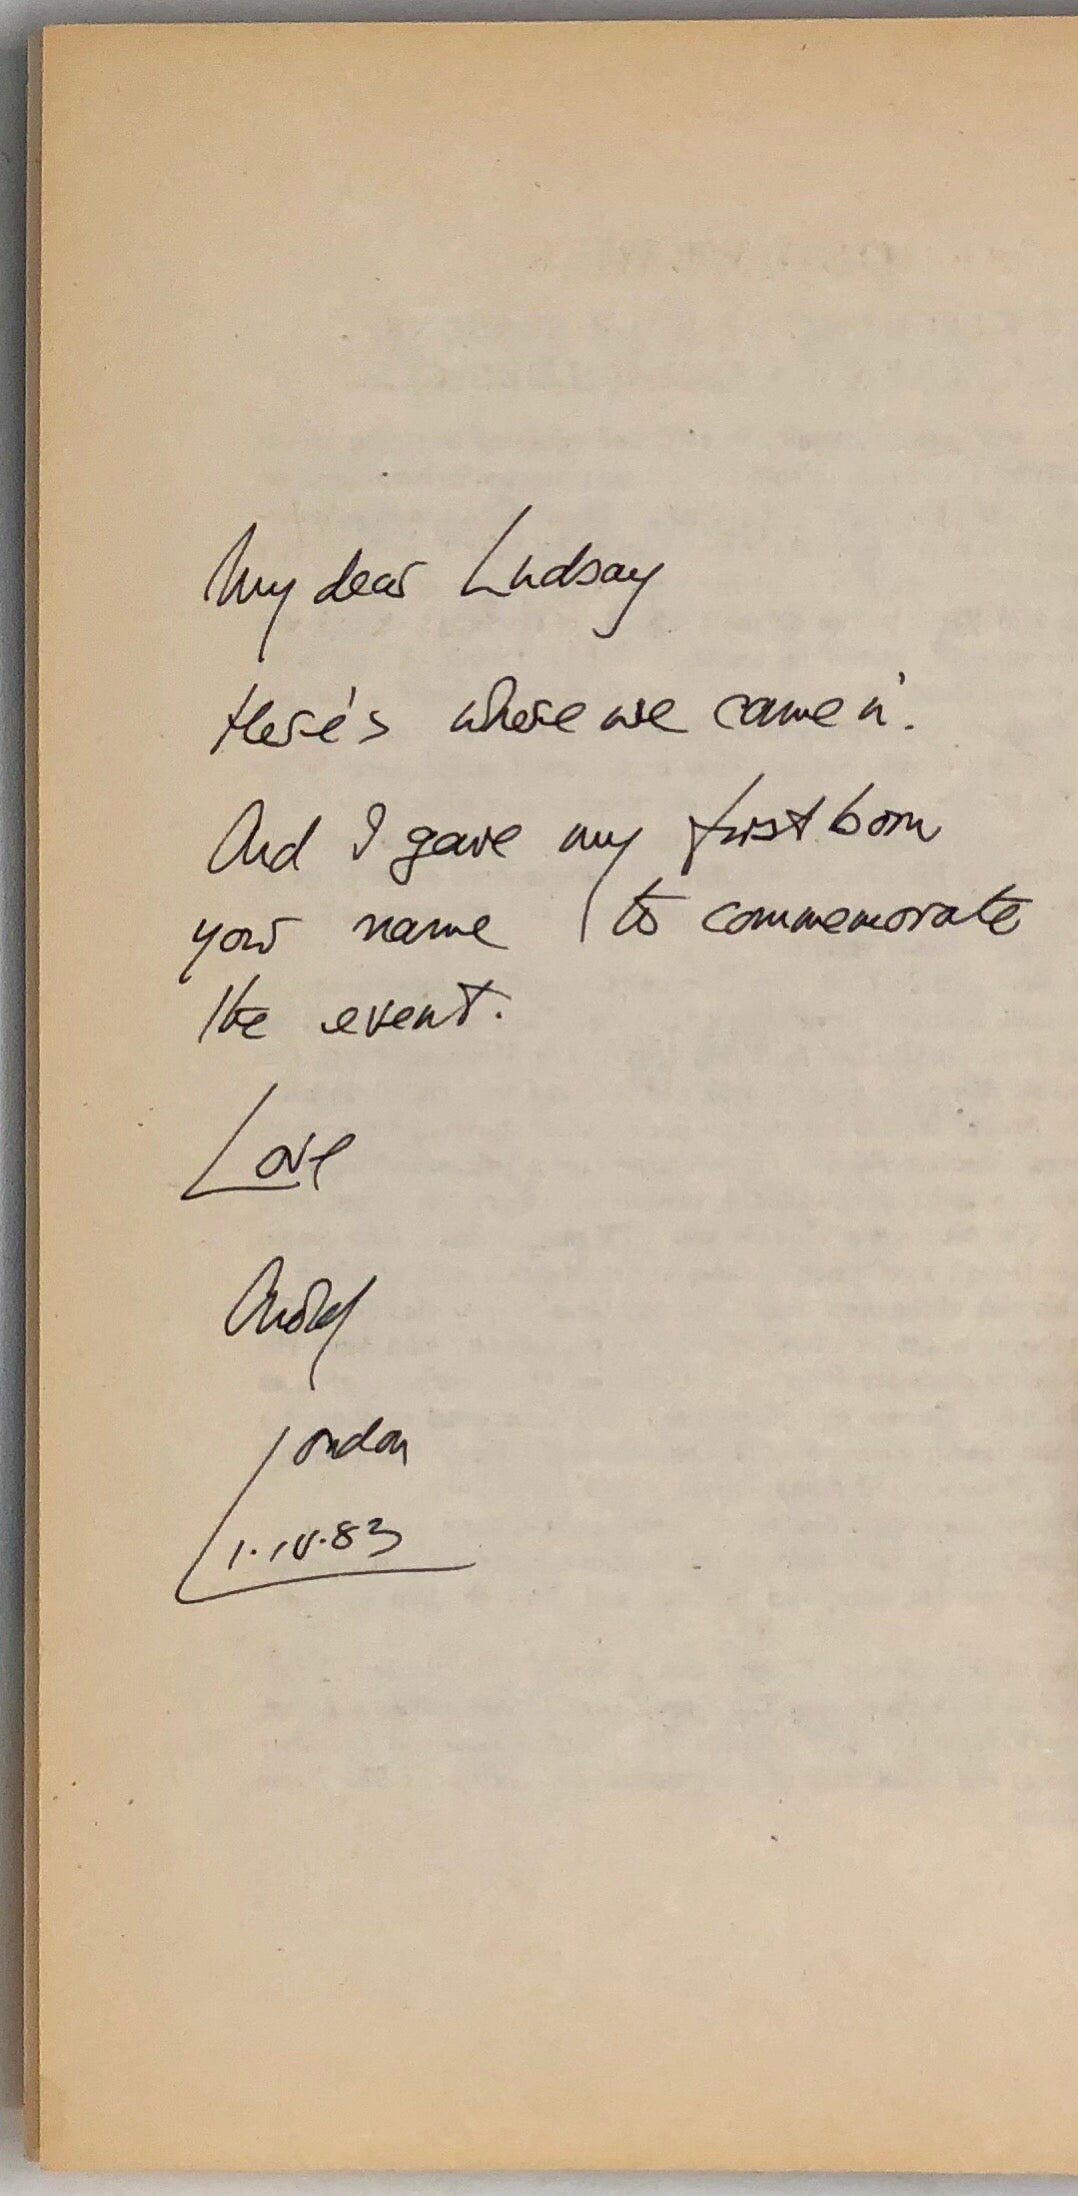 My dear Lindsay
Here's where we came in.
And I gave my first born
your name to commemorate
the event.
Love
Arnold
London
1.IV.83